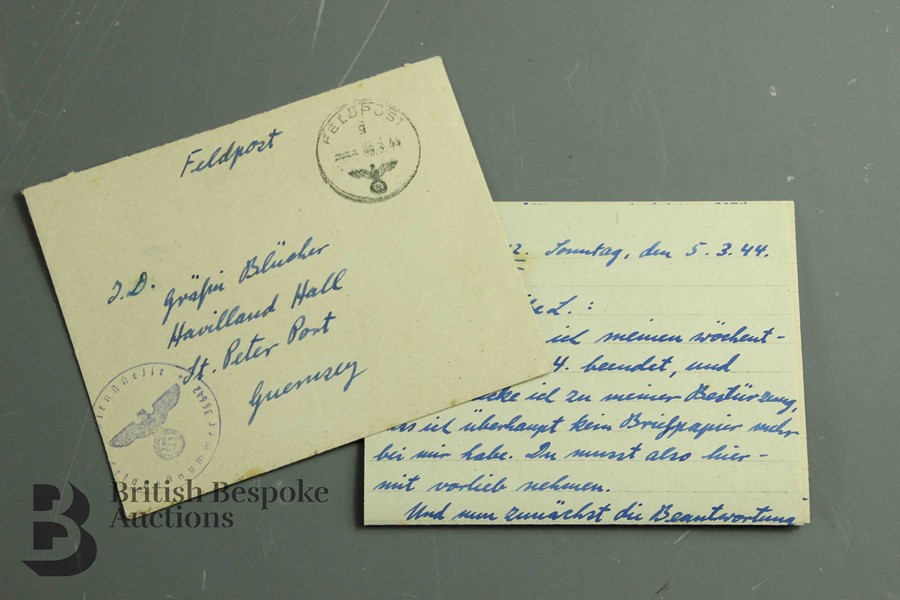 Feldpost
FELDPOST
g
.3.44
I.D. Gräfin Blücher
Havilland Hall
St. Peter Port
Guernsey
36642
2. Sonntag, den 5.3.44.
L.:
ich meinen wöchent-
4. beendet, und
ich zu meiner Bestürzung,
ich überhaupt kein Briefpapier mehr
bei mir habe. Du musst also hier-
mit vorlieb nehmen.
Und nun zunächst die Beantwortung
B
British Bespoke
Auctions